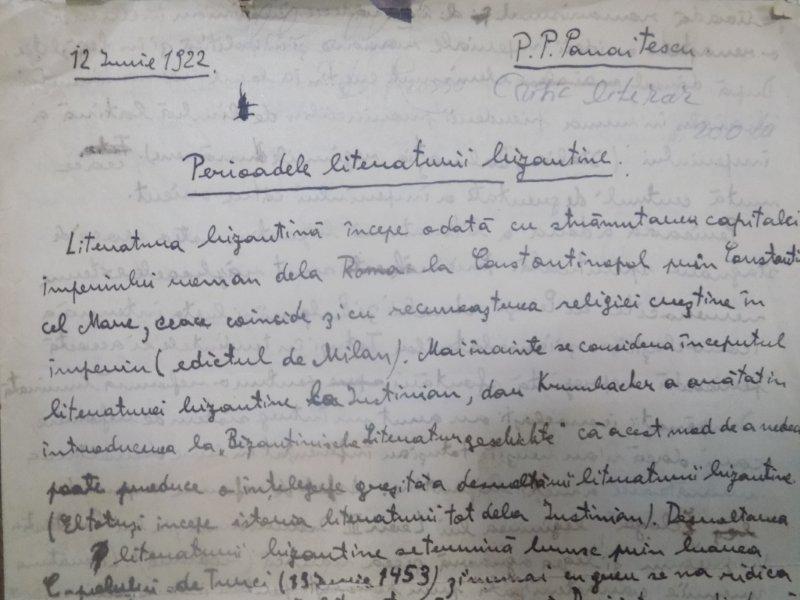 12 Iunie 1922.
P. P. Panaitescu
Critic literar
Perioadele literaturii bizantine.
Literatura bizantină începe odată cu strămutarea capitalei
imperiului roman dela Roma la Constantinopol prin Constantin
cel Mare, ceace coincide și cu recunoașterea religiei creștine în
imperiu (edictul de Milan). Mai înainte se considera începutul
literaturei bizantine la Iustinian, dar Krumbacher a arătat in
introducerea la „Bizantinische Literaturgeschichte" că acest mod de a vedea
poate produce o înțelegere greșită a desvoltării literaturii bizantine
(El totuși incepe istoria literaturii tot dela Iustinian). Desvoltarea
literaturii bizantine se termină brusc prin luarea
de Turci (1453) și numai cu greu se va ridica